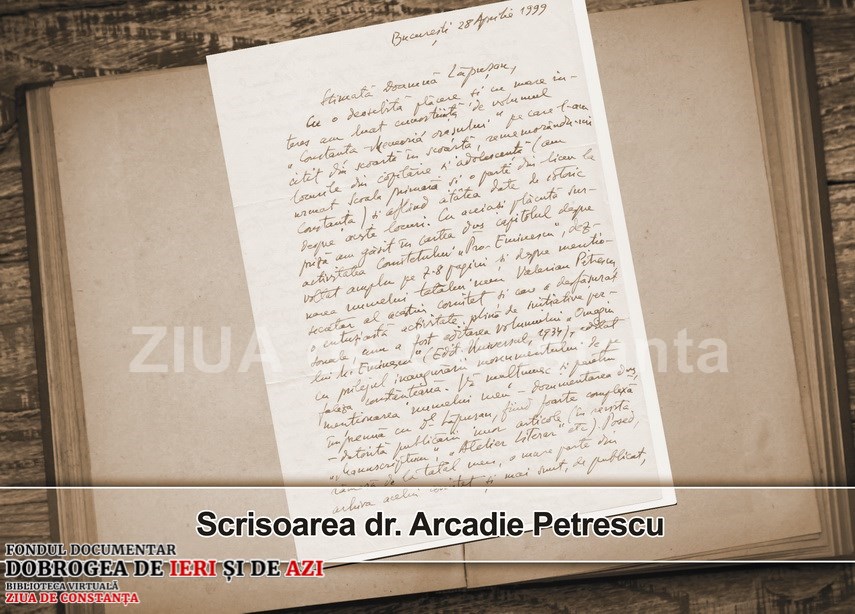 București 28 Aprilie 1999
Stimată Doamnă Lăpușan,
Cu o deosebită plăcere și cu mare in-
teres am luat cunoștiință de volumul
„Constanța - Memoria orașului" pe care l-am
citit din scoarță în scoarță, rememorându-mi
locurile din copilărie și adolescență (am
urmat școala primară și o parte din liceu la
Constanța) și aflând atâtea date de istoric
despre aceste locuri. Cu aceiași plăcută sur-
priză am găsit în cartea dvs capitolul despre
activitatea Comitetului „Pro-Eminescu", dez-
voltat amplu pe 7-8 pagini și despre mentio-
narea numelui tatălui meu Valerian Petrescu
secretar al acestui comitet și care a desfășurat
o entusiastă activitate plină de inițiative per-
sonale cum a fost editarea volumului „Omagiu
lui M. Eminescu" (Edit. Universul, 1934), editat
cu prilejul inaugurării monumentului de pe
faleza constănțeană. Vă mulțumesc și pentru
menționarea numelui meu - documentarea dvs
împreună cu Dl. Lăpușan, fiind foarte complexă
- datorită publicării unor articole (în revista
„Manuscriptum", „Atelier Literar" etc). Posed,
de la tatăl meu, o mare parte din
arhiva acelui comitet și mai sunt, de publicat,
ZIUA de Constanta
Scrisoarea dr. Arcadie Petrescu
FONDUL DOCUMENTAR
DOBROGEA DE IERI ȘI DE AZI
BIBLIOTECA VIRTUALĂ
ZIUA DE CONSTANȚA